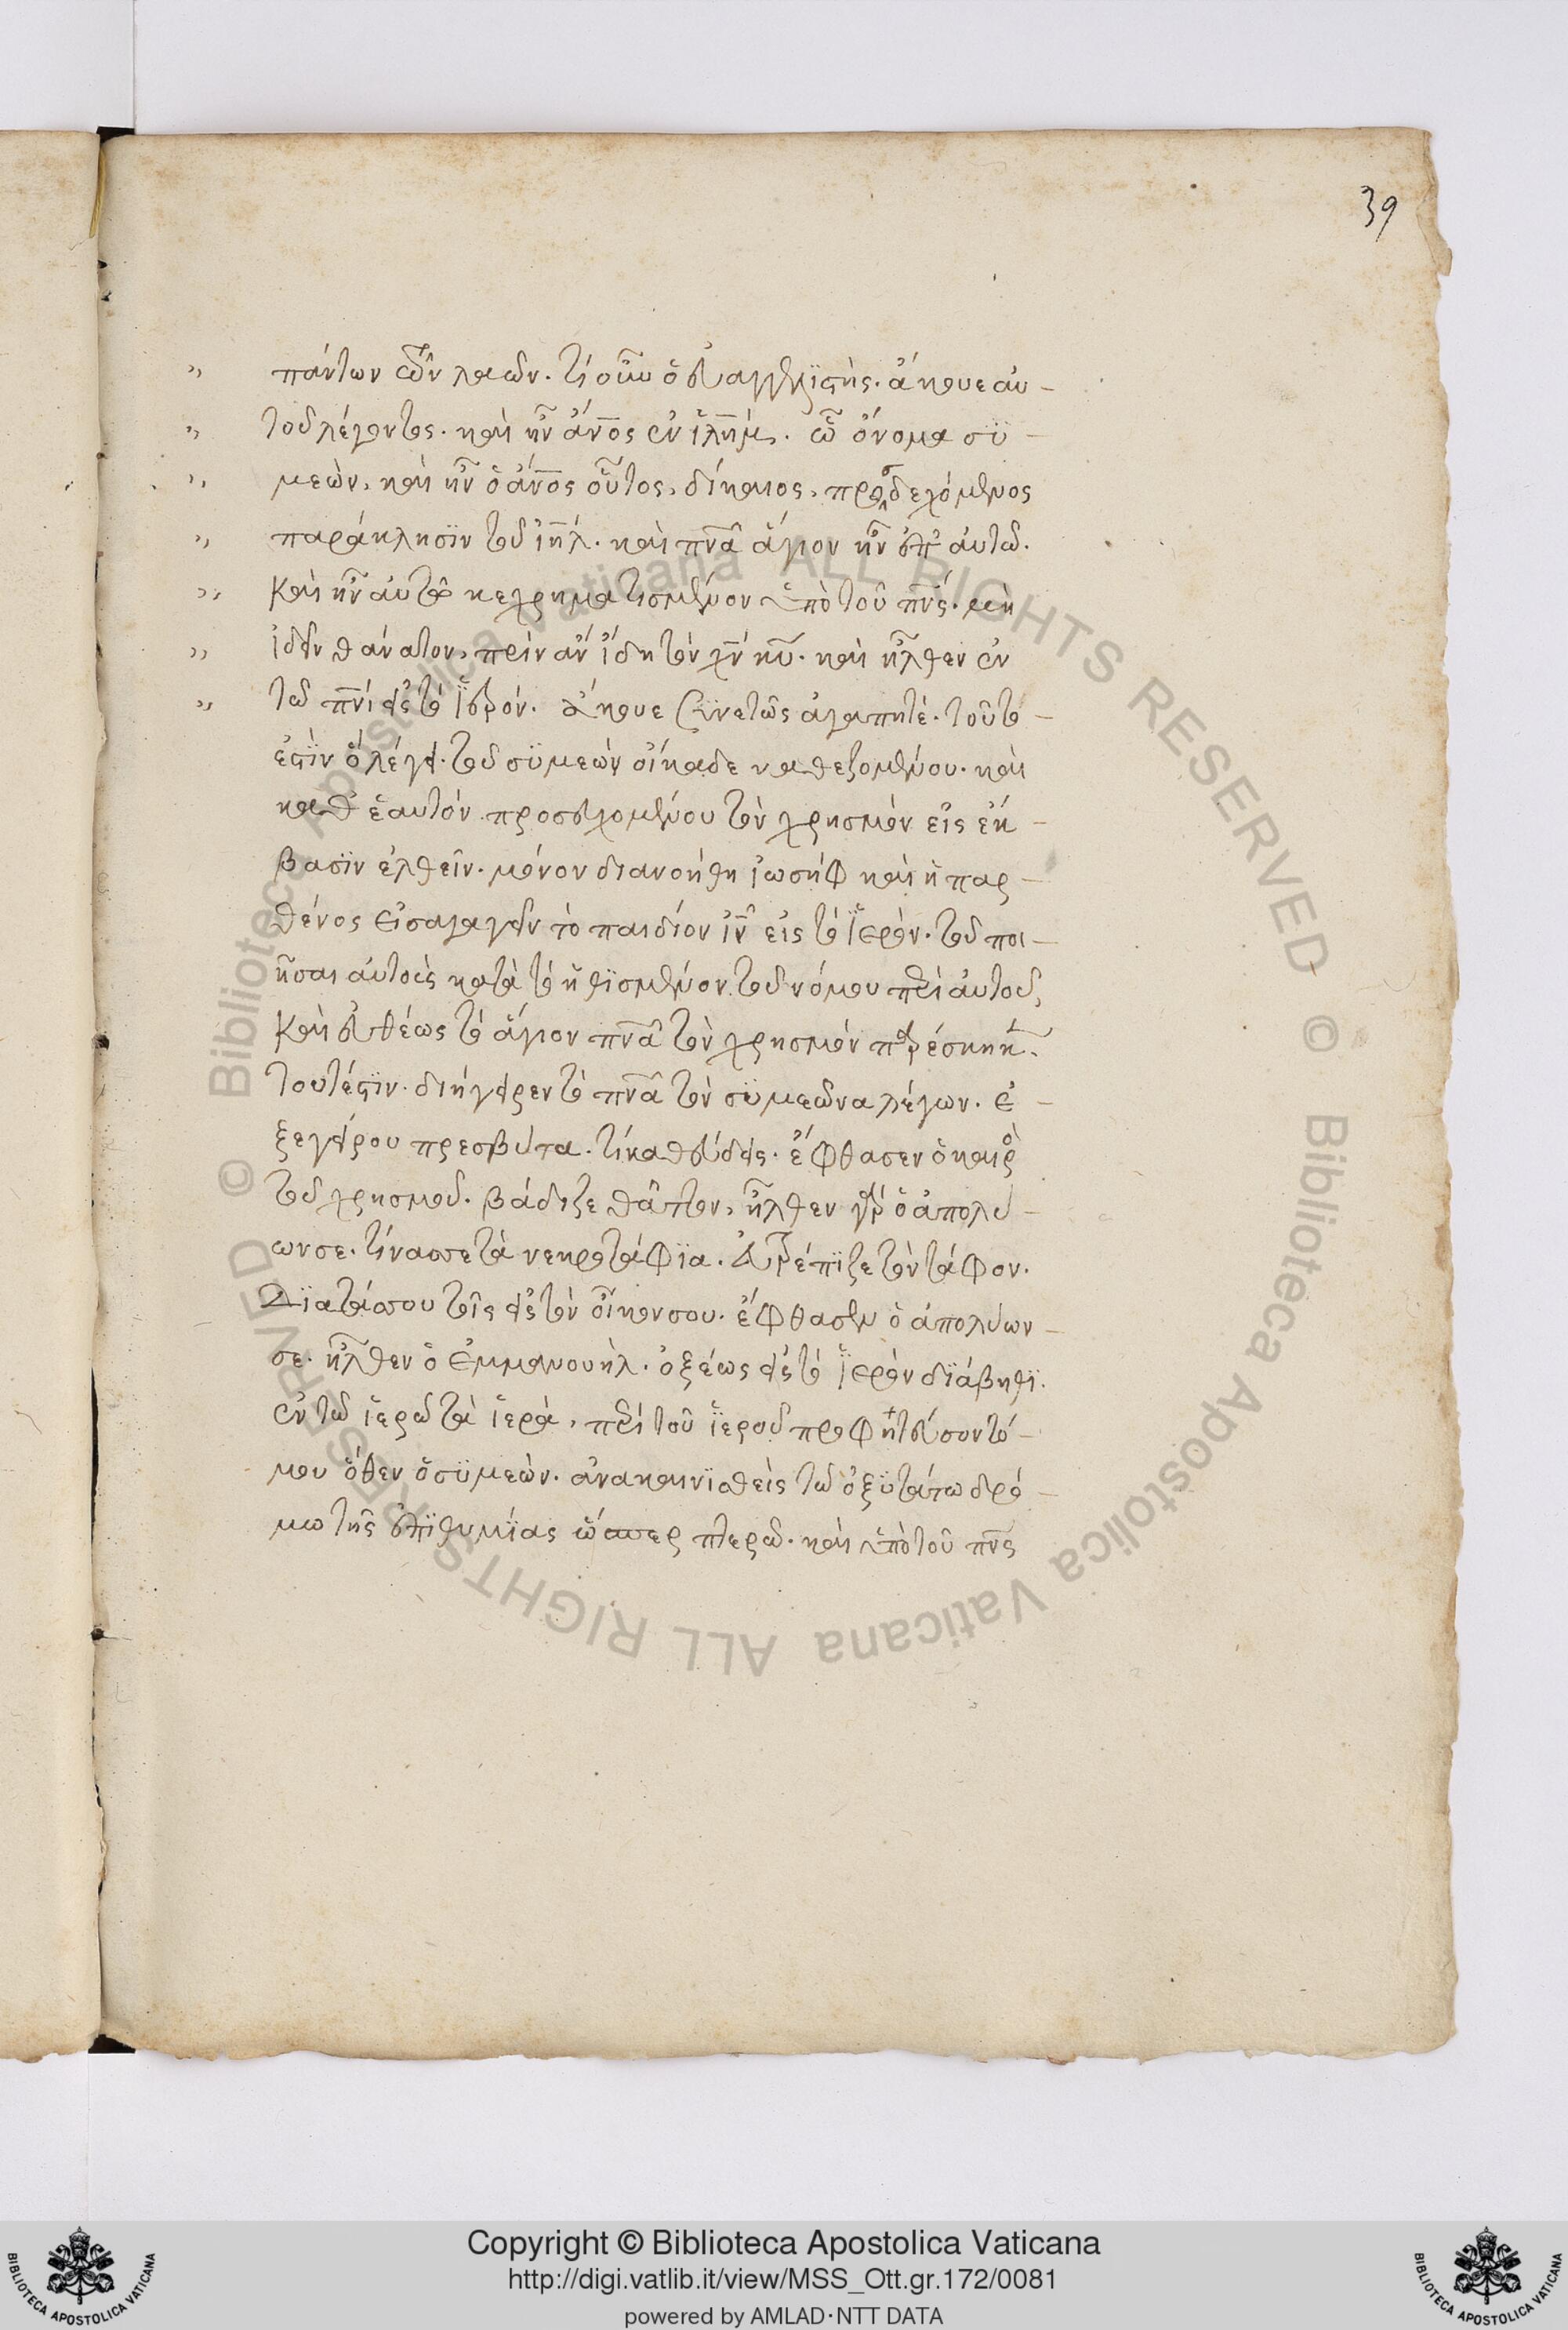 39
πάντων τῶν λαῶν. τί οὖν ὁ εὐαγγελϊστὴς. ἄκουε αὐ-
τοῦ λέγοντος. καὶ ἦν ἄν̅ο̅ς ἐν ἰλ̅η̅μ. ὧ ὄνομα σϋ-
μεὼν, καὶ ἦν ὁ ἄν̅ο̅ς οὗτος, δίκαιος, προσδεχόμενος
παράκλησϊν τοῦ ἰη̅λ. καὶ πν̅α ἅγιον ἦν ἐπ' αὐτῶ.
Καὶ ἦν αὐτῶ κεχρηματισμένον ὑπὸ τοῦ πν̅ς. μὴ
ἰδεῖν θάνατον, πρὶν ἂν ἴδη τὸν χν̅ κυ̅. καὶ ἦλθεν ἐν
τῶ πν̅ι εἰς τὸ ἱερόν. ἄκουε συνετῶς ἀγαπητέ. τοῦτο-
ἐστϊν ὃ λέγει. τοῦ σϋμεὼν οἴκαδε καθεζομένου. καὶ
καθ' ἑαυτόν προσδεχομένου τὸν χρησμὸν εἰς ἔκ-
βασϊν ἐλθεῖν. μόνον διανοήθη ἰωσὴφ καὶ ἡ παρ-
θένος εἰσαγαγεῖν τὸ παιδίον ἰν̅ εἰς τὸ ἱερὸν. τοῦ ποι-
ῆσαι αὐτοὺς κατὰ τὸ ἠθϊσμένον τοῦ νόμου περὶ αὐτοῦ,
Καὶ εὐθέως τὸ ἅγιον πν̅α τὸν χρησμὸν παρέσκηπτ.
τουτέστϊν. διήγειρεν τὸ πν̅α τὸν σϋμεῶνα λέγων. ἐ-
ξεγείρου πρεσβύτα. τί καθεύδεις. ἔφθασεν ὁ καιρὸ
τοῦ χρησμοῦ. βάδιζε θᾶττον, ἦλθεν γὰρ ὁ ἀπολύ-
ων σε. τίνασσε τὰ νεκροτάφϊα. εὐτρέπϊζε τὸν τάφον.
Δϊατάσσου τοῖς εἰς τὸν οἶκον σου. ἔφθασεν ὁ ἀπολύων-
σε. ἦλθεν ὁ Ἐμμανουὴλ. ὀξέως εἰς τὸ ἱερὸν δϊάβηθϊ.
ἐν τῶ ἱερῶ τὰ ἱερὰ, περὶ τοῦ ἱεροῦ προφήτευσον τό-
μου ὅθεν ὁ σϋμεὼν. ἀνακαινϊσθεὶς τῶ ὀξϋτάτω δρό-
μω τῆς ἐπϊθυμϊας ὥσπερ πτερῶ. καὶ ὑπὸ τοῦ πν̅ς
Copyright © Biblioteca Apostolica Vaticana
http://digi.vatlib.it/view/MSS_Ott.gr.172/0081
powered by AMLAD·NTT DATA